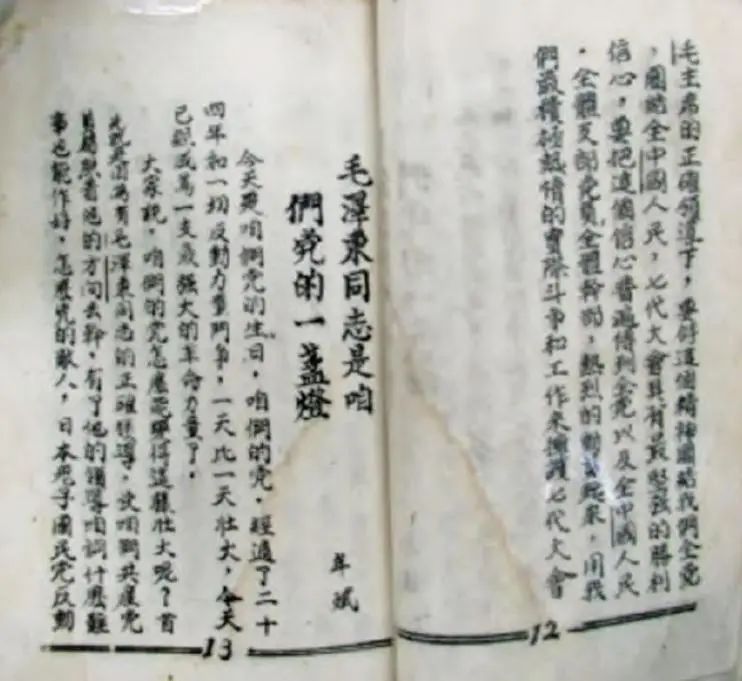 毛主席的正確領導下，要以這個精神團結我們全党
，團結全中國人民，七代大會具有最堅强的勝利
信心，要把這個信心普遍傳到全党以及全中國人民
．全體支部党員全體幹部，熱烈的動員起來，用我
們最積極熱情的實際斗爭和工作來擁護七代大會
12
毛澤東同志是咱
們党的一盞燈
斌
今天是咱們党的生日，咱們的党，經過了二十
四年和一切反動力量鬥爭，一天比一天壯大，今天
已經成爲一支最强大的革命力量了．
大家說，咱們的党怎麽能得這樣壯大呢？首
先就是因爲有毛澤東同志的正確領導，使咱們共產党
員照着他的方向去幹，有了他的領導咱們什麽難
事也能作好，怎麽党的敵人，日本鬼子國民党反動
13